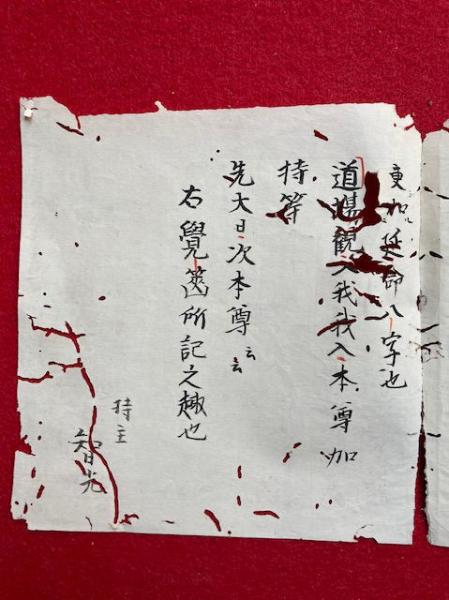 更加延命八字也
道場観入我我入本尊加
持等
先大日次本尊云云
右覺筥所記之趣也
持主
智光